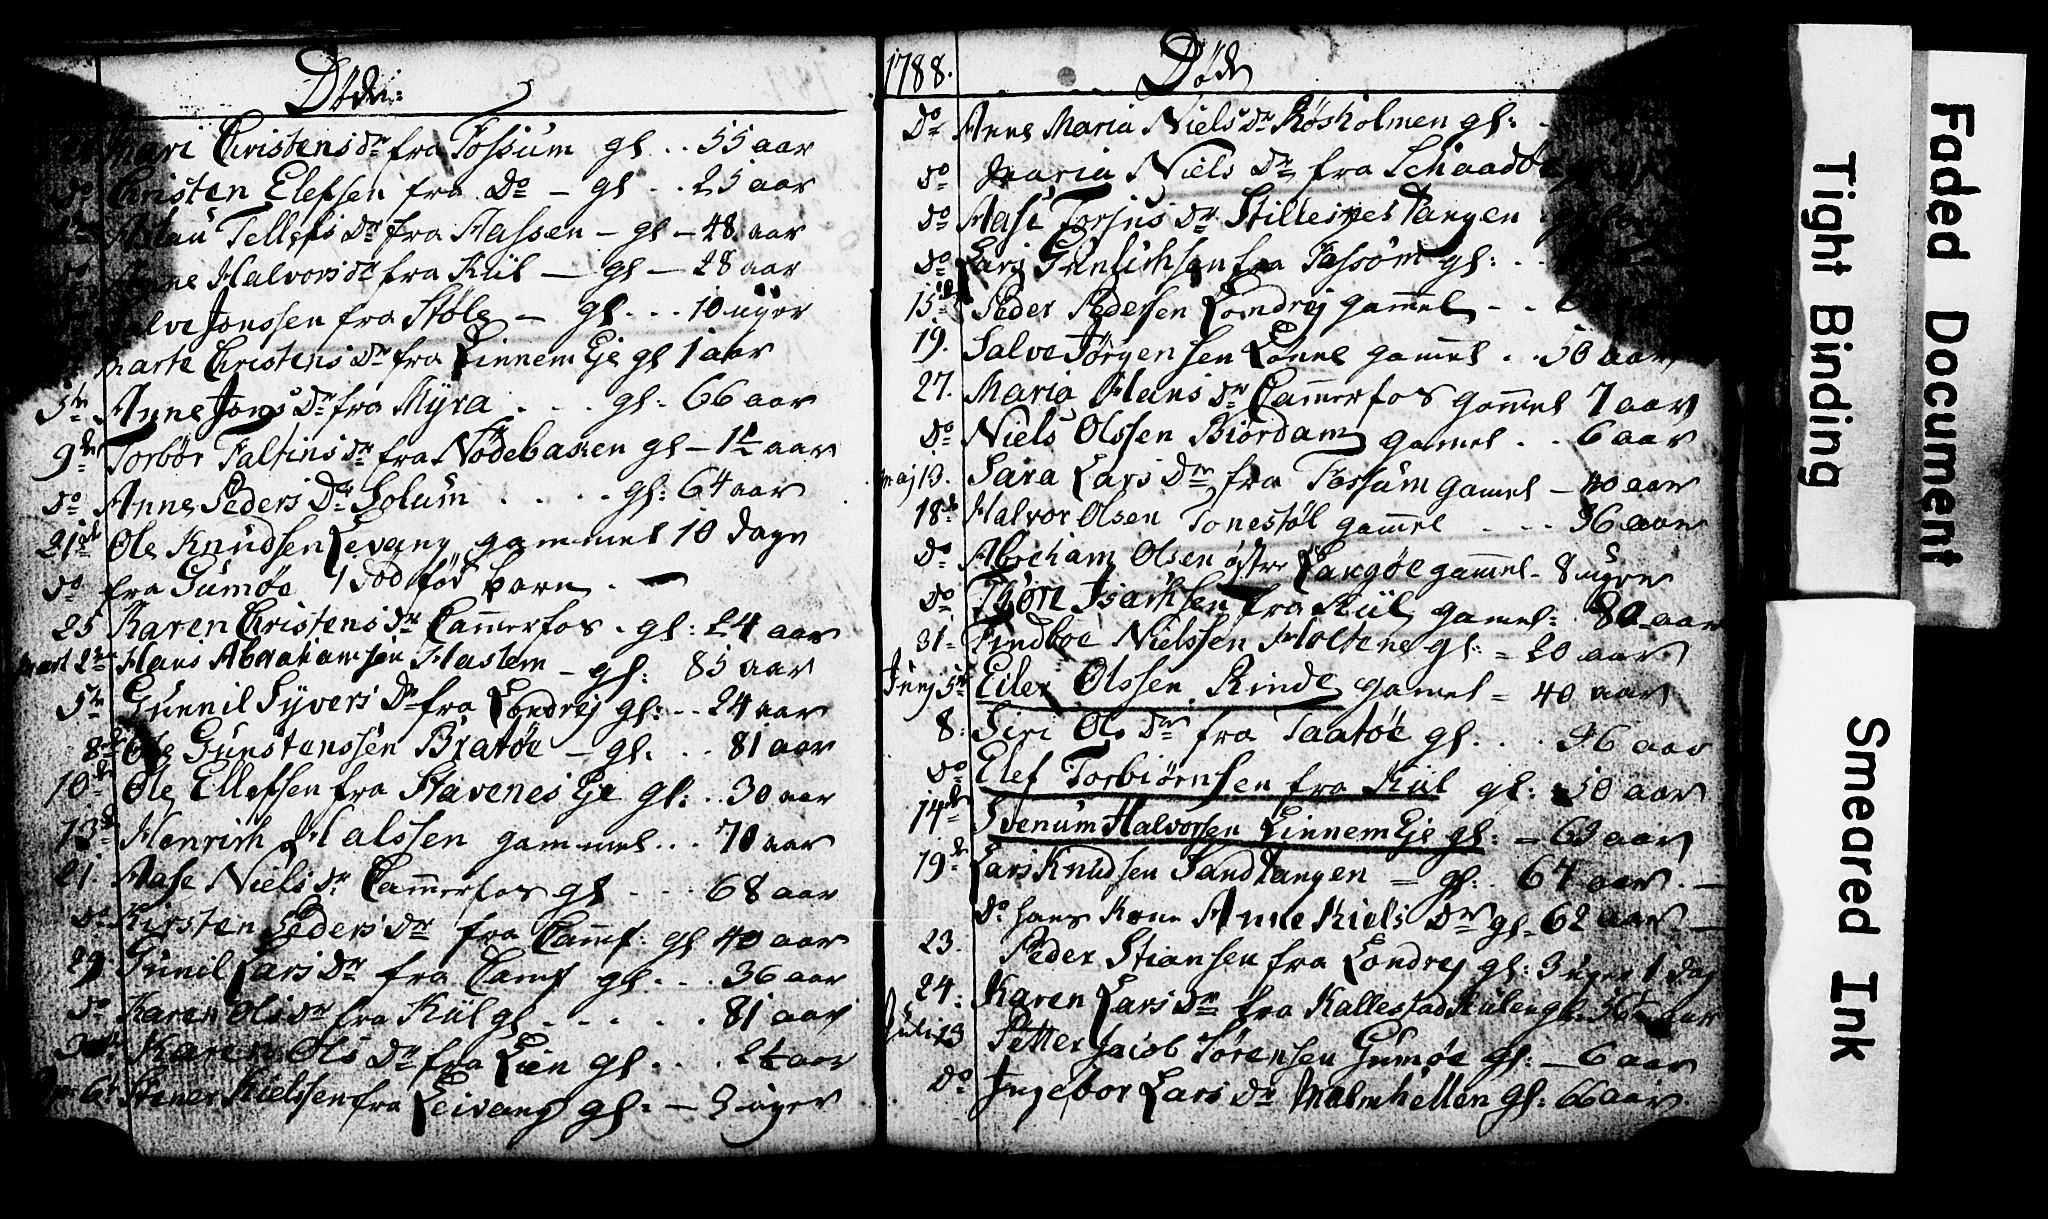 Døde:
Mari Christens dr fra Fossum gl .. 55 aar
do Christen Elefsen fra do - gl .. 25 aar
Aslau Tellefs dr fra Aassen - gl - 48 aar
do Anne Halvors dr fra Kiil - gl - 28 aar
Salve Jonssen fra Støle - gl ... 10 uger
Marte Christens dr fra Linnem Eje gl 1 aar
5te Anne Jons dr fra Myra ... gl: 66 aar
9de Torbør Faltins dr fra Nødebaken gl - 1½ aar
do Anne Peders dr Solum .... gl: 64 aar
21de Ole Knudsen Levang gammel 10 dage
do fra Gumøe 1 død fød barn . -
25 Karen Christens dr Cammerfos . gl: 24 aar
Mart 2den Hans Abrahamsen Haslem - gl: 85 aar
5te Gunnil Syvers dr fra Londrej gl: .. 24 aar
8de Ole Gunstenssen Bratøe - gl. .. 81 aar
10de Ole Ellefsen fra Stavenes Eje gl: .. 30 aar
13de Henrich Halssen gammel ... 70 aar
21. Aase Niels dr Cammerfos gl ... 68 aar
do Kirsten Peders dr fra Camf: gl 40 aar
29 Gunil Lars dr fra Camf gl ... 36 aar
do Karen Ols dr fra Kiil gl ..... 81 aar
Karen Ols dr fra Lien gl ... 2½ aar
6te Stener Kielssen fra Leivang gl: - 3 uger
1788. Døde
do Anne Maria Niels dr Røsholmen gl:
do Maria Niels dr fra Schaadt
do Aase Torjus dr Stillesnes Tangen
do Lars Gunlichsen fra Fossom gl: ..
15de Peder Pedersen Londrej gammel - .
19. Salve Jørgensen Lønne gammel .. 50 aar
27. Maria Hans dr Cammerfos gammel 7 aar
do Niels Olssen Biørdam gamel .. 6 aar
Maj 13. Sara Lars dr fra Fossum gamel - 40 aar
18de Halvor Olsen Tonestøl gammel ... 36 aar
do Abraham Olsen østre Langøe gammel - 8 uger
do Thore Isachsen fra Kiil gamel: 80 aar
31. Findboe Nielssen Holtene gl: = 20 aar
Junj 5te Eiler Olssen Rinde gamel = 40 aar
8. Siri Ols dr fra Taatøe gl ... 36 aar
do Elef Torbiørnsen fra Kiil gl: 50 aar
14de Svenum Halvorsen Linnem Eje gl: = 63 aar
19de Lars Knudsen Sandtangen = gl: . 67 aar. -
do hans Kone Anne Kiels dr gl. 62 aar. -
23. Peder Stiansen fra Londrej gl: 3 uger 1 dag
24. Karen Lars dr fra Kallestad Kilen gl. 36 aar
Juli 13 Petter Jacob Sørensen Gumøe gl: - 6 aar
do Ingebor Lars dr Malmhellen gl: 66 aar
Faded Document
Tight Binding
Smeared Ink